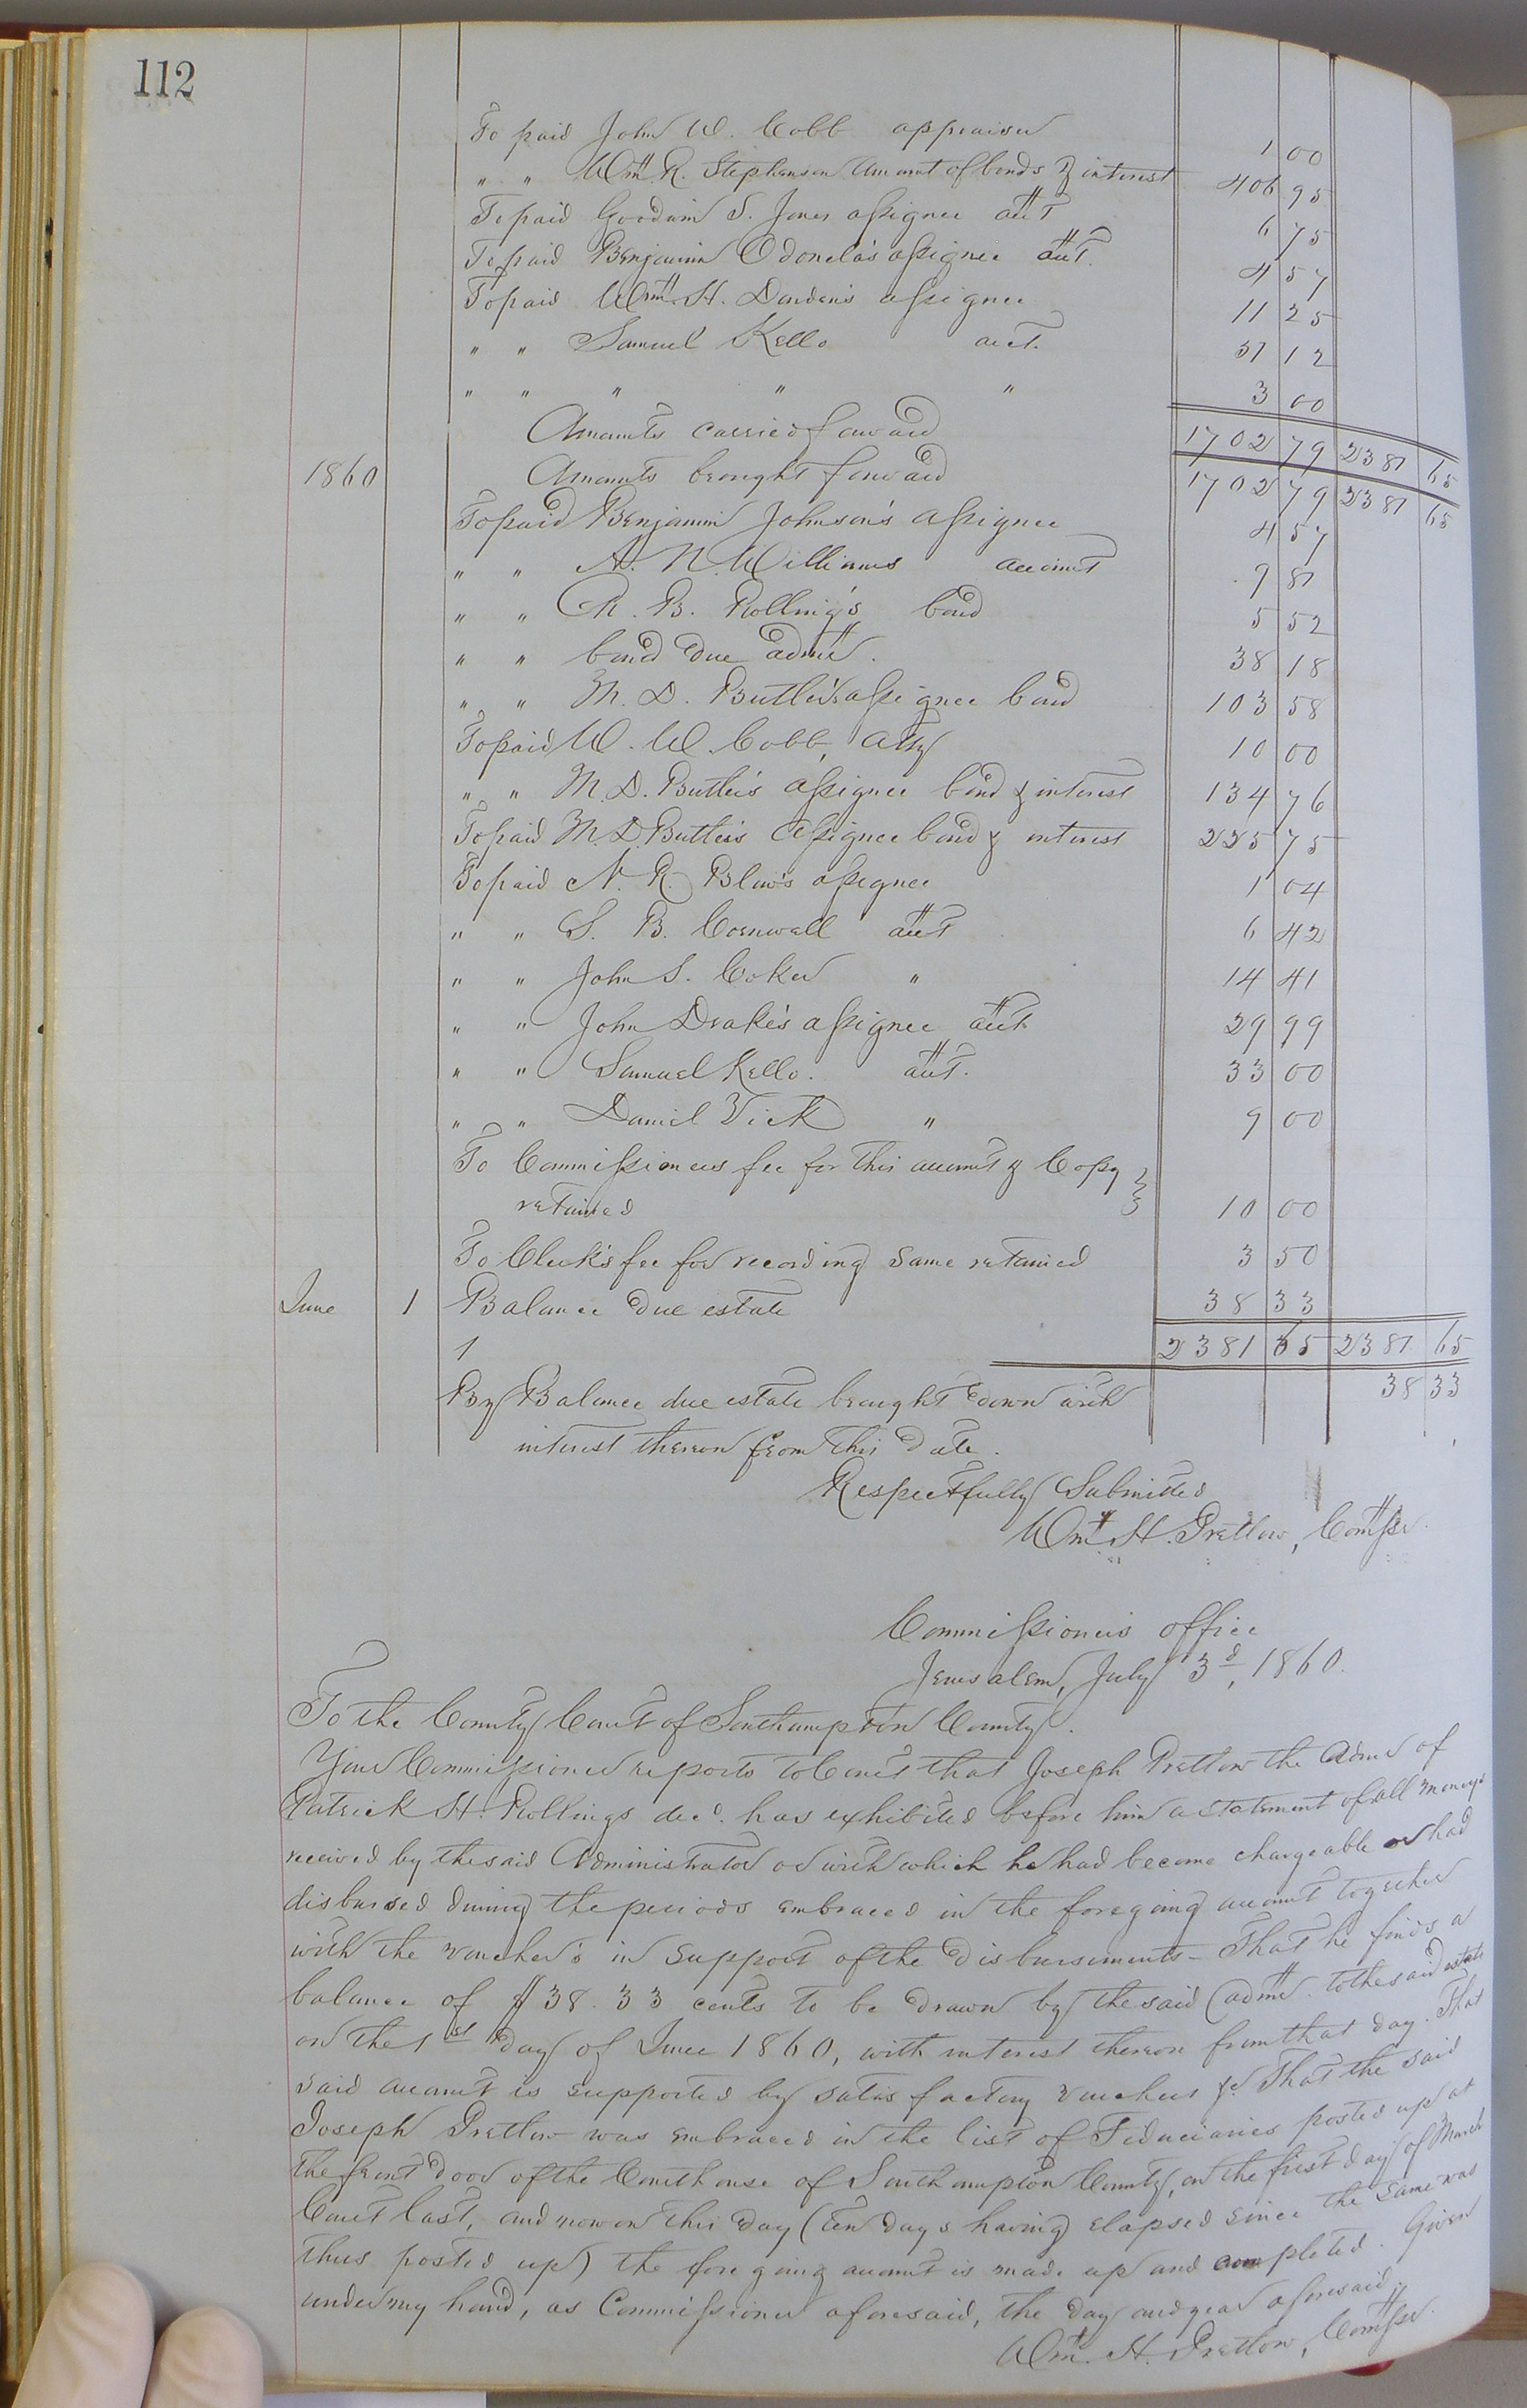 112
To paid John W. Cobb appraiser 1 00
" " Wm. R. Stephenson amount of bonds & interest 406 95
To paid Goodwin S. Jones assignee acct 6 75
To paid Benjamin Odonela's assignee acct. 4 57
To paid Wm. H. Darden's assignee 11 25
" " Samuel Kello acct. 51 12
" " " " " 3 00
Amounts carried forward 1702 79 2381 65
1860 Amounts brought forward 1702 79 2381 65
To paid Benjamin Johnson's assignee 4 57
" " A. N. Williams account 9 81
" " R. B. Rolling's bond 5 52
" " bond due admr. 38 18
" " M. D. Butler's assignee bond 103 58
To paid W. W. Cobb, atty 10 00
" " M. D. Butler's assignee bond & interest 134 76
To paid M. D. Butler's assignee bond & interest 225 75
To paid N. R. Blow's assignee 1 04
" " S. B. Cornwall acct 6 42
" " John S. Coker " 14 41
" " John Drake's assignee acct. 29 99
" " Samuel Kello. acct. 33 00
" " Daniel Vick " 9 00
To Commissioners fee for this account & Copy
retained 10 00
To Clerk's fee for recording same retained 3 50
June 1 Balance due estate 38 33
1 2381 65 2381 65
By Balance due estate brought down with 38 33
interest thereon from this date.
Respectfully Submitted
Wm. H. Pretlow, Comissr.
Commissioners office
Jerusalem, July 3d, 1860.
To the County Court of Southampton County.
Your Commissioner reports to Court that Joseph Pretlow the Admr of
Patrick H. Rollings decd. has exhibited before him a statement of all moneys
received by the said Administrator or with which he had become chargeable or had
disbursed during the periods embraced in the foregoing account together
with the voucher's in support of the disbursements - That he finds a
balance of $38.33 cents to be drawn by the said admr. to the said estate
on the 1st day of June 1860, with interest thereon from that day. That
said account is supported by satisfactory vouchers &c. That the said
Joseph Pretlow was embraced in the list of Fiduciaries posted up at
the front door of the Courthouse of Southampton County, on the first day of March
Court last, and now on this day (ten days having elapsed since the same was
thus posted up) the foregoing account is made up and completed. Given
under my hand, as Commissioner aforesaid, the day and year aforesaid.
Wm. H. Pretlow, Comissr.